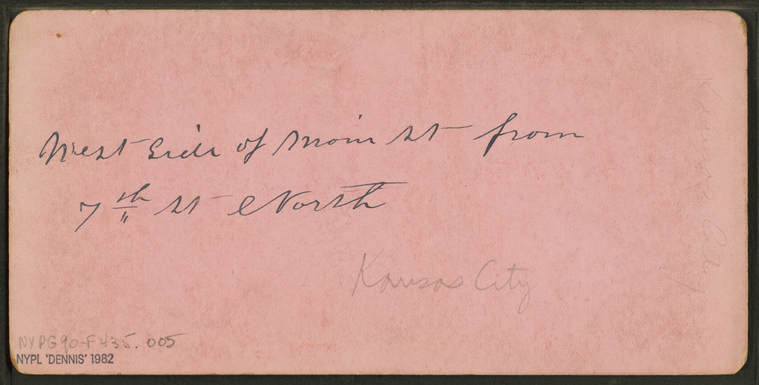 West Side of Main St from
7th St North
Kansas City
Kansas City
NYPG90-F435.005
NYPL 'DENNIS' 1982